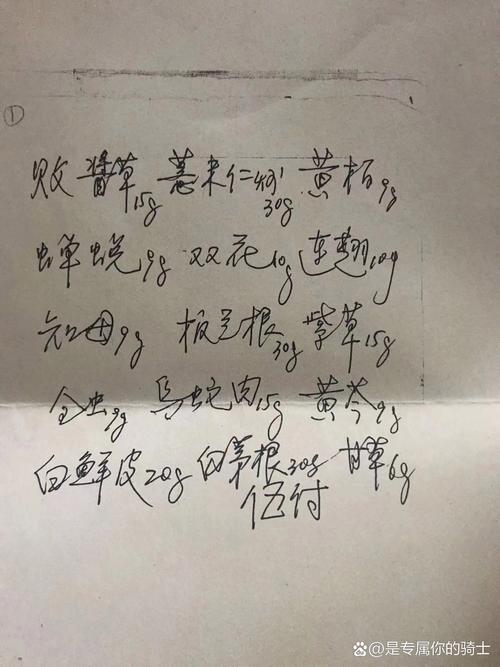 ①
败酱草15g 薏米仁(炒)30g 黄柏9g
蝉蜕9g 双花10g 连翘10g
知母9g 板兰根30g 紫草15g
全虫9g 乌蛇肉15g 黄芩9g
白鲜皮20g 白茅根30g 甘草6g
伍付
@是专属你的骑士